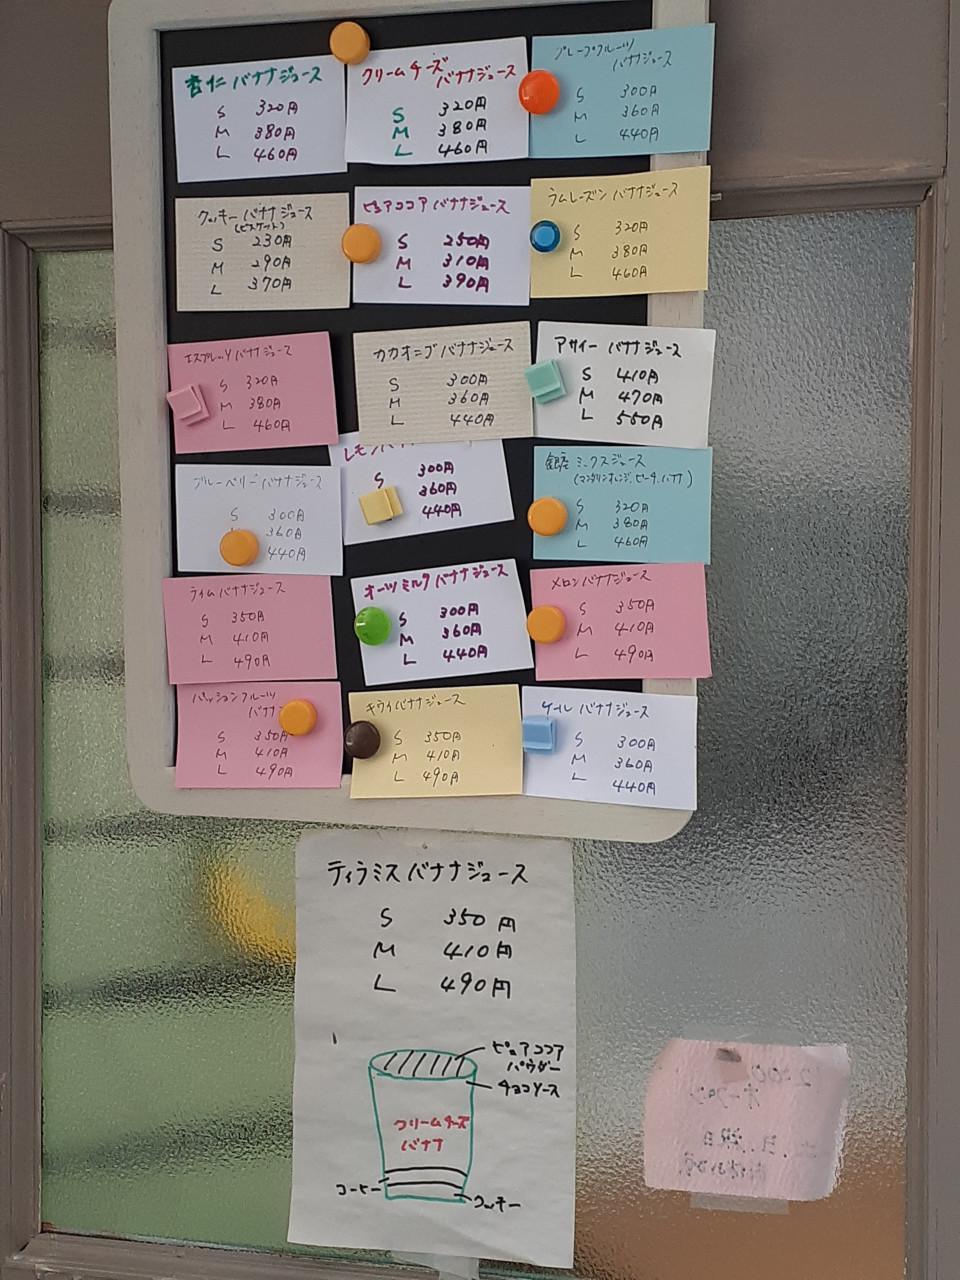 杏仁 バナナジュース
S 320円
M 380円
L 460円
クリームチーズ
バナナジュース
S 320円
M 380円
L 460円
グレープフルーツ
バナナジュース
S 300円
M 360円
L 440円
クッキー バナナジュース
(ビスケット)
S 230円
M 290円
L 370円
ピュアココア バナナジュース
S 250円
M 310円
L 390円
ラムレーズン バナナジュース
S 320円
M 380円
L 460円
エスプレッソ バナナジュース
S 320円
M 380円
L 460円
カカオニブ バナナジュース
S 300円
M 360円
L 440円
アサイー バナナジュース
S 410円
M 470円
L 550円
ブルーベリーバナナジュース
S 300円
360円
440円
レモンバ
S 300円
360円
440円
銀座 ミックスジュース
(マンダリンオレンジ、ピーチ、バナナ)
S 320円
M 380円
L 460円
ライムバナナジュース
S 350円
M 410円
L 490円
オーツミルク バナナジュース
S 300円
M 360円
L 440円
メロンバナナジュース
S 350円
M 410円
L 490円
パッションフルーツ
バナナ
S 350円
M 410円
L 490円
キウイバナナジュース
S 350円
M 410円
L 490円
ケール バナナジュース
S 300円
M 360円
L 440円
ティラミス バナナジュース
S 350円
M 410円
L 490円
ピュアココア
パウダー
チョコソース
クリームチーズ
バナナ
コーヒー
クッキー
オープン
土、日、祝日